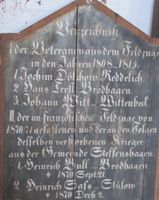 Verzeichnitz
I der Veteranen aus dem Feldzuge
in den Jahren 1808-1815.
1 Jochim Dölchow Reddelich
2 Hans Brott Brodhagen
3 Johann Witt Wittenbeck
II der im französischen Feldzuge von
1870/71 gefallenen und der an den Folgen
desselben verstorbenen Krieger
aus der Gemeinde Steffenshagen
1 Heinrich Bull Brodhagen
1870 Sept 21.
2 Heinrich Sass Stülow
1870 Decb 2.